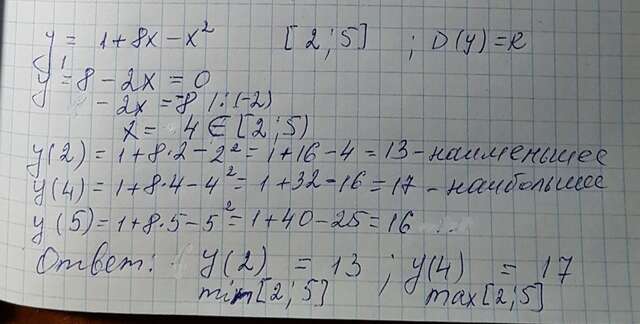 y = 1+8x-x² [2;5] ; D(y)=R
y' = 8-2x=0
-2x=-8 /:(-2)
x= 4 ∈ [2;5)
y(2)=1+8·2-2²=1+16-4=13-наименьшее
y(4)=1+8·4-4²=1+32-16=17-наибольшее
y(5)=1+8·5-5²=1+40-25=16
Ответ: y(2) = 13 ; y(4) = 17
min[2;5] max[2;5]